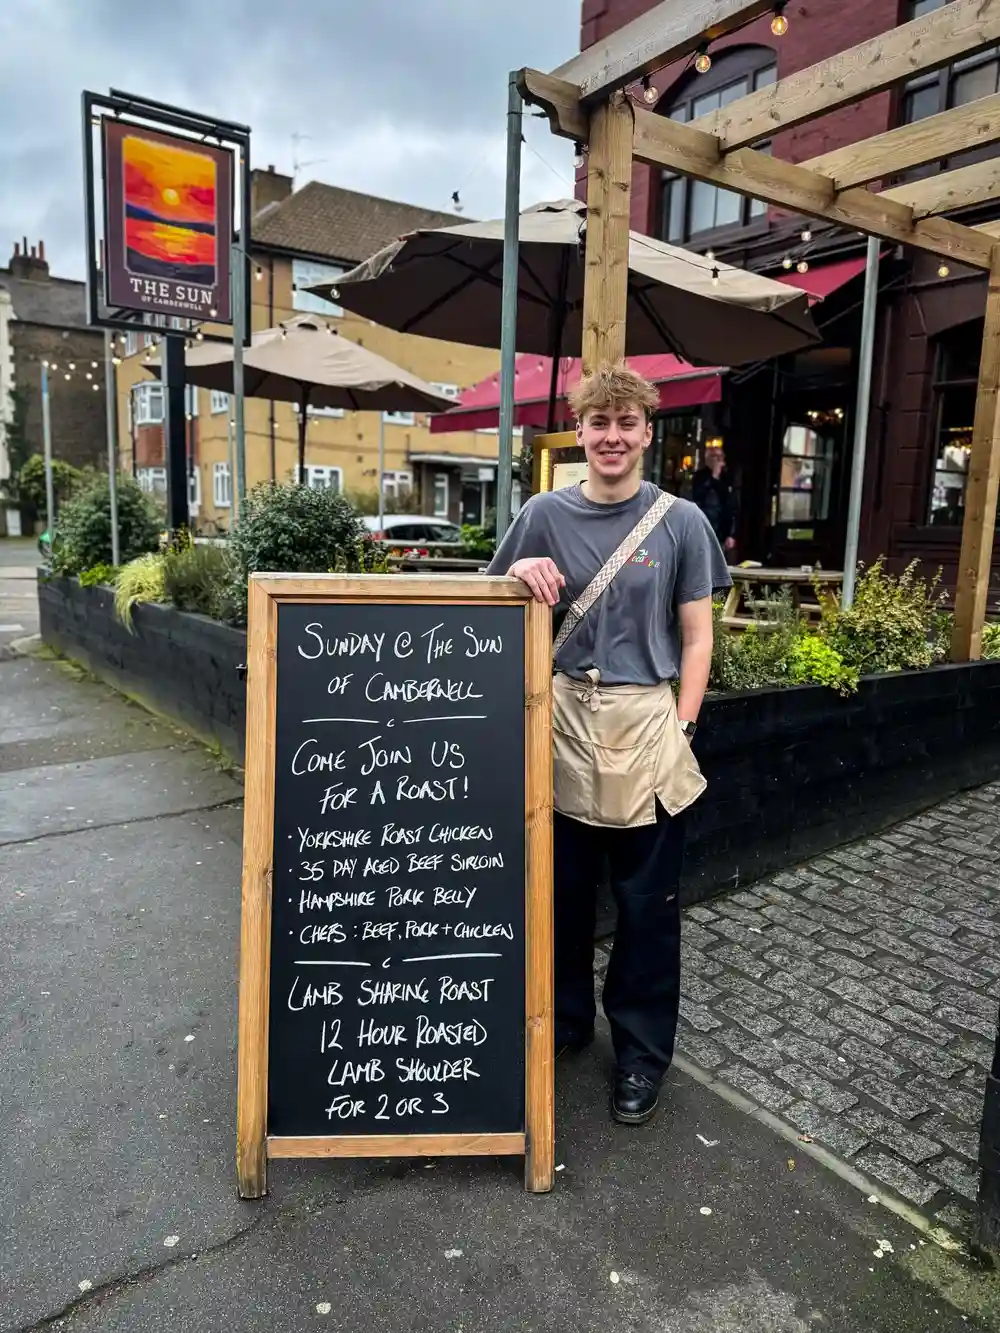 THE SUN
OF CAMBERWELL
SUNDAY @ THE SUN
OF CAMBERWELL
COME JOIN US
FOR A ROAST!
· YORKSHIRE ROAST CHICKEN
· 35 DAY AGED BEEF SIRLOIN
· HAMPSHIRE PORK BELLY
· CHEFS : BEEF, PORK + CHICKEN
LAMB SHARING ROAST
12 HOUR ROASTED
LAMB SHOULDER
FOR 2 OR 3